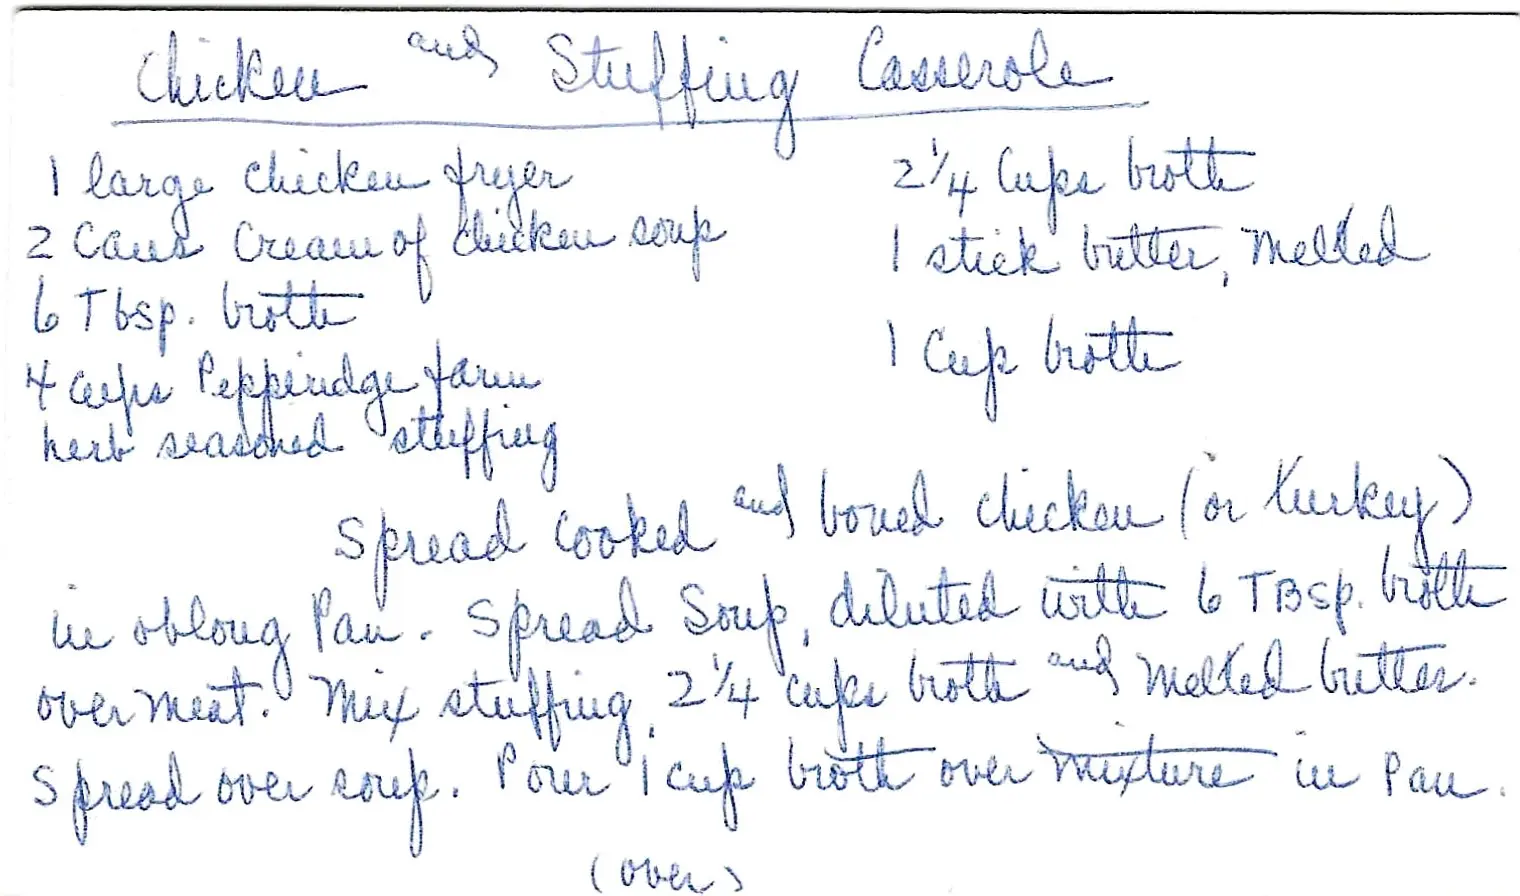 Chicken and Stuffing Casserole
1 large chicken fryer
2 Cans Cream of chicken soup
6 Tbsp. broth
4 cups Pepperidge farm
herb seasoned stuffing
2 1/4 Cups broth
1 stick butter, Melted
1 Cup broth
Spread cooked and boned chicken (or turkey)
in oblong Pan. Spread Soup, diluted with 6 TBSp. broth
over meat. Mix stuffing, 2 1/4 cups broth and Melted butter.
Spread over soup. Pour 1 cup broth over mixture in Pan.
(over)